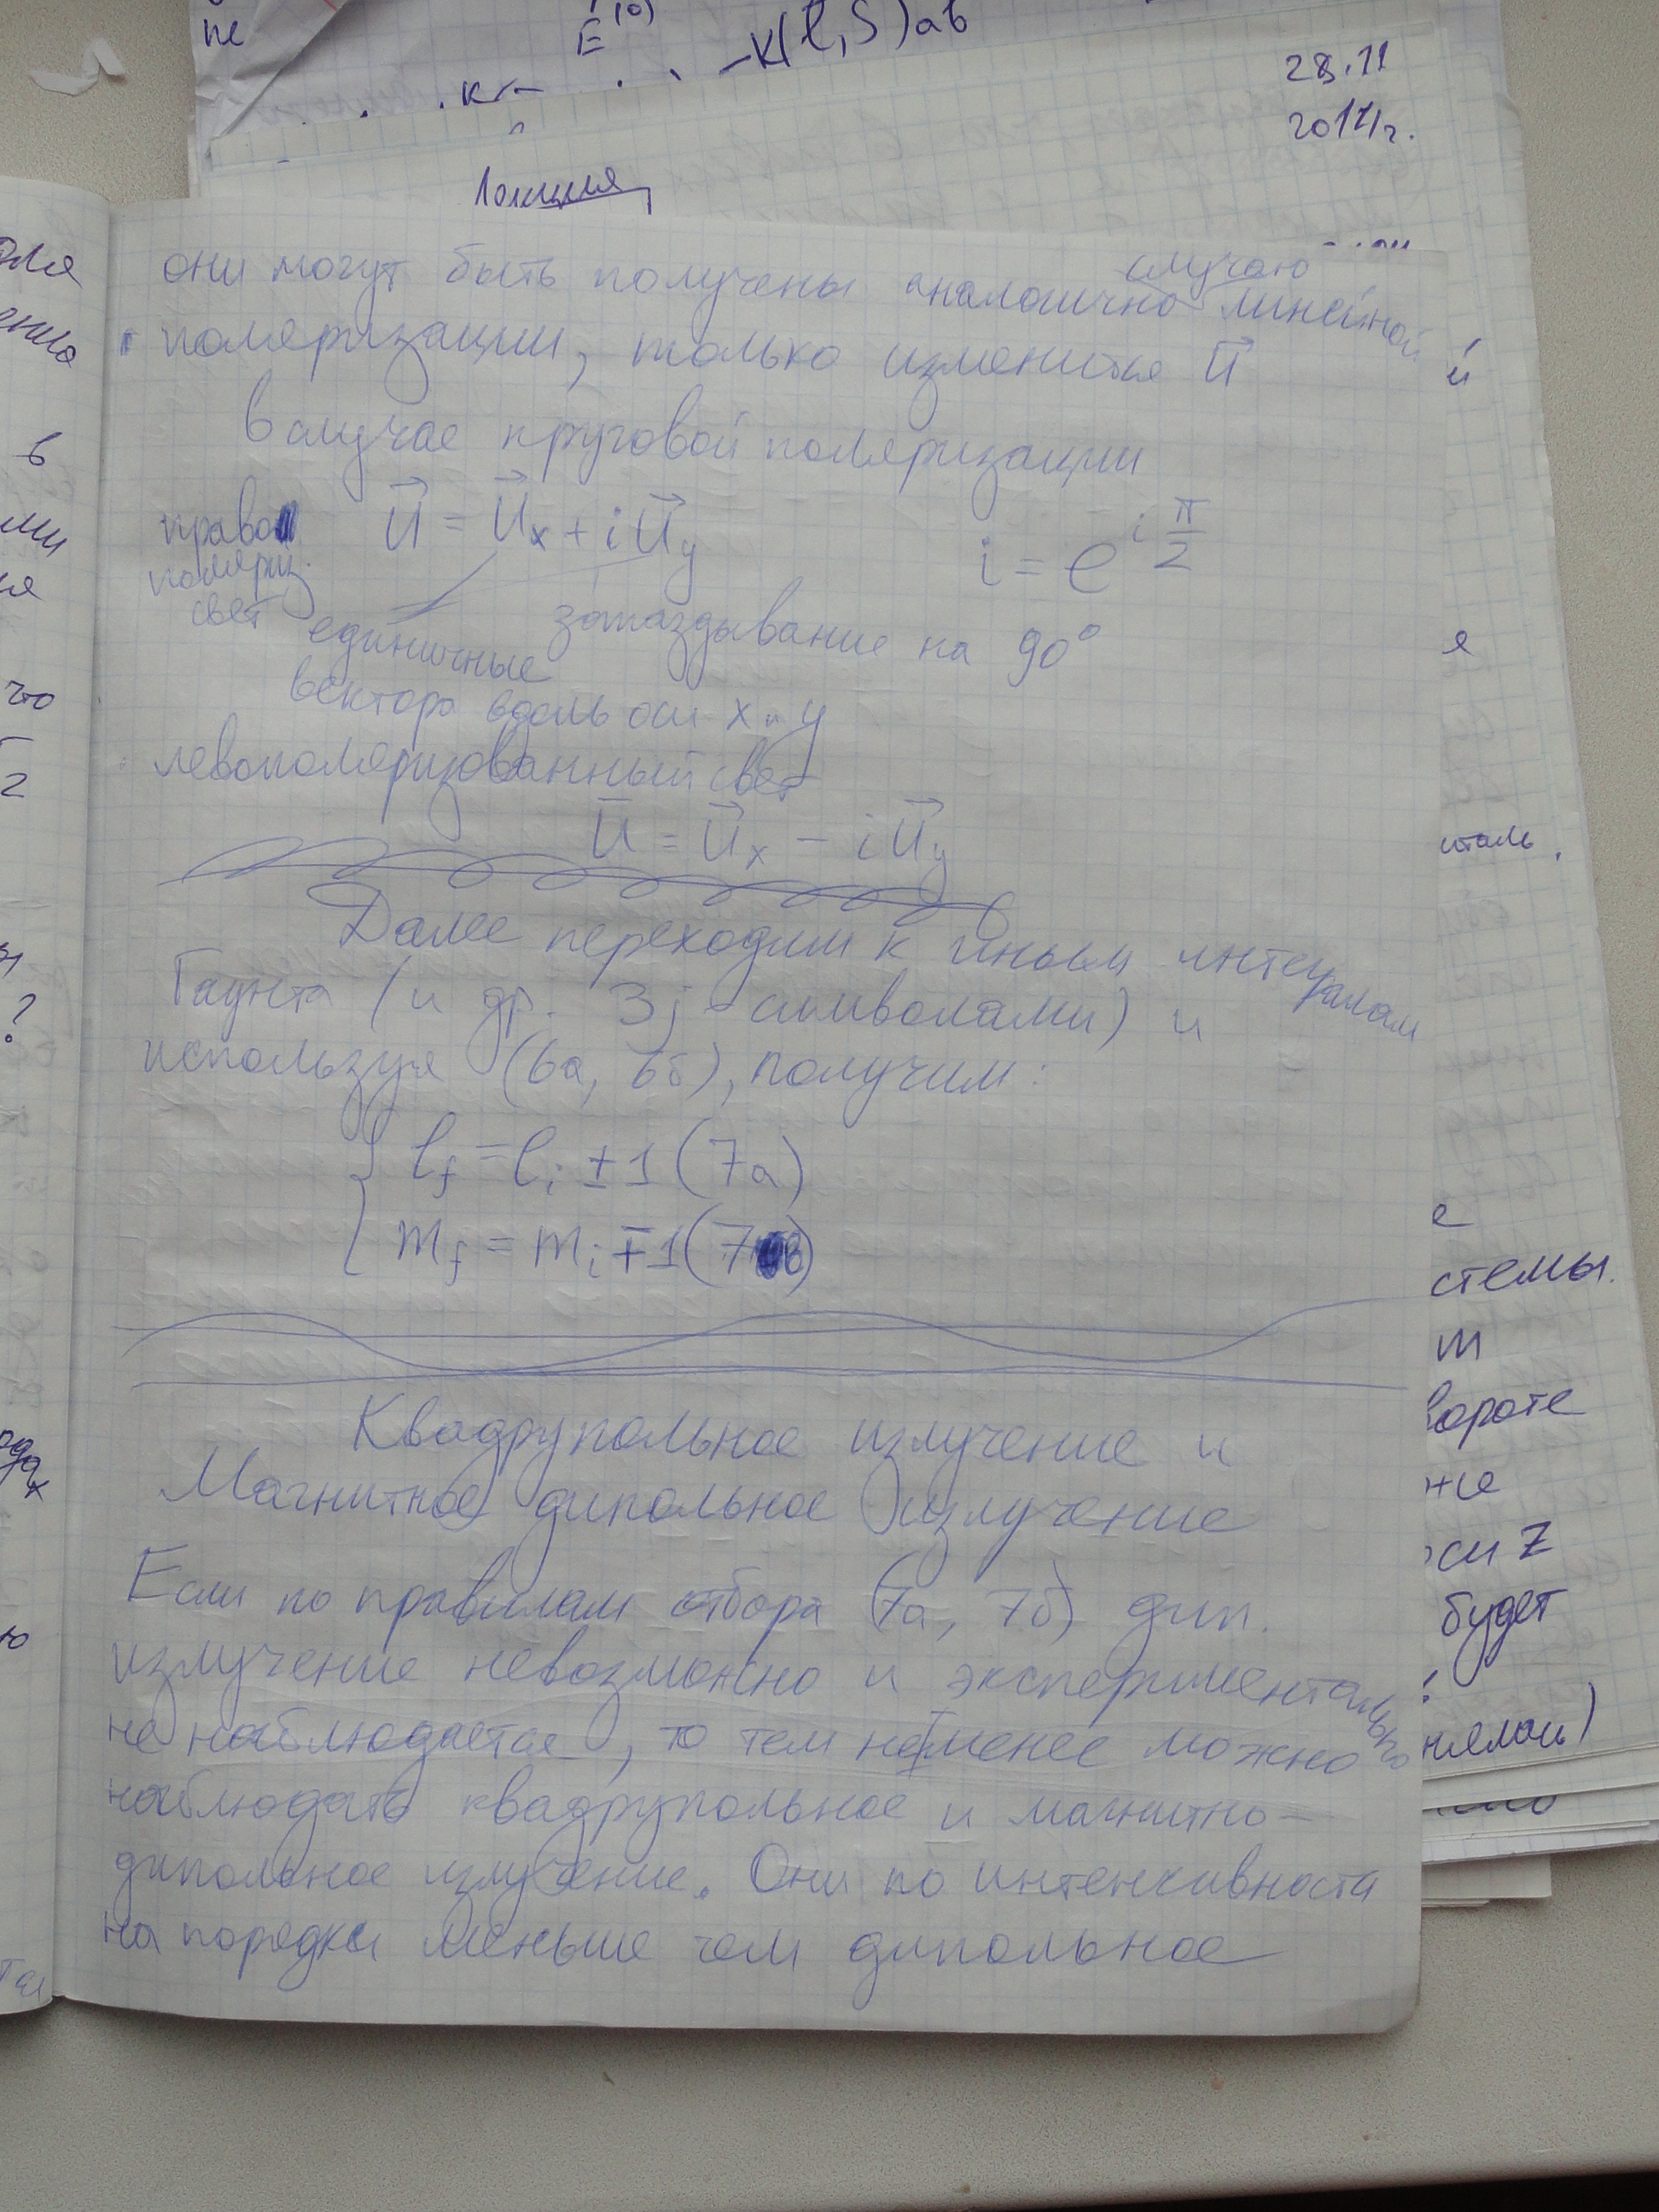 28.11
2017г.
Лекция
они могут быть получены аналогично случаю линейной
поляризации, только изменится U⃗
В случае круговой поляризации
право поляриз. свет U⃗ = U⃗x + iU⃗y i = e^(i π/2)
единичные вектора вдоль оси x и y
запаздывание на 90°
левополяризованный свет
U̅ = U⃗x − iU⃗y
Далее переходим к иным интегралам
Гаунта (и др. 3j-символами) и
используя (6а, 6б), получим:
{ lf = li ±1 (7а)
{ mf = mi ∓1 (7в)
Квадрупольное излучение и
Магнитное дипольное излучение
Если по правилам отбора (7а, 7б) дип.
излучение невозможно и экспериментально
не наблюдается, то тем не менее можно
наблюдать квадрупольное и магнитно-
дипольное излучение. Они по интенсивноста
на порядки меньше чем дипольное